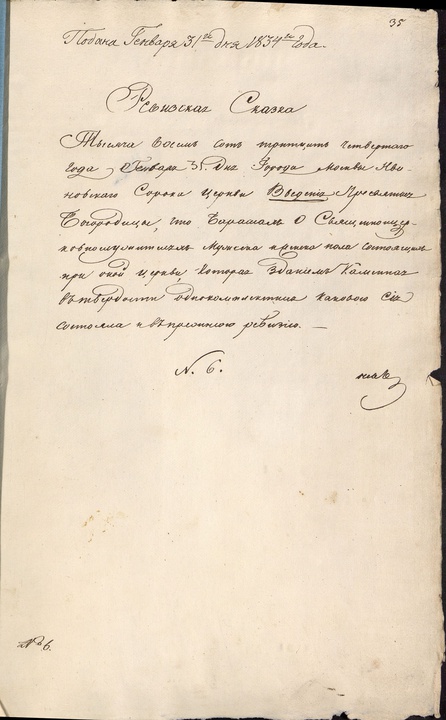 35
Подана Генваря 31го дня 1834го года.
Ревизская Сказка
Тысяча восемь сотъ тритцать четвертаго
года Генваря 31 дня Города Москвы Ива-
новскаго Сорока Церкви Введенія Пресвятыя
Богородицы, что Барашахъ О Священноцер-
ковнослужителяхъ мужеска пола состоящихъ
при оной церкви, которая зданіемъ каменная
въ твердости однокомплектна каковою
состояла и въ ревизію. —
N. 6.
№ 6.